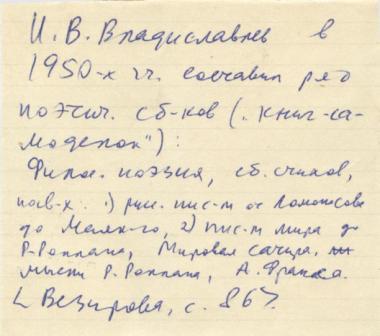 И. В. Владиславлев в
1950-х гг. составил ряд
поэтич. сб-ков („книг-са-
моделок"):
Филос. поэзия, сб. стихов,
посв-х. 1) рус. пис-м от Ломоносова
до Маяк-го, 2) пис-м мира до
Р. Роллана, Мировая сатира.
мысли Р. Роллана, А. Франса.
Везирова, с. 867.